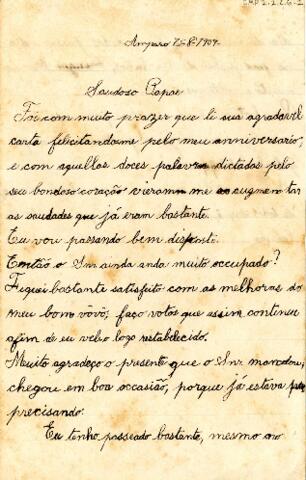 CMP 2.2.6-2
Amparo 7-8-1909
Saudoso Papae
Foi com muito prazer que li sua agradavel
carta felicitandome pelo meu anniversario,
e com aquellas doces palavras dictadas pelo
seu bondoso coração vieram me augmentar
as saudades que já eram bastante.
Eu vou passando bem disposto.
Então o Snr ainda anda muito occupado?
Fiquei bastante satisfeito com as melhoras do
meu bom vôvô; faço votos que assim continue
afim de eu velo logo restabelecido.
Muito agradeço o presente que o Snr. mandou,
chegou em boa occasião, porque já estava
precisando.
Eu tenho passeado bastante, mesmo no